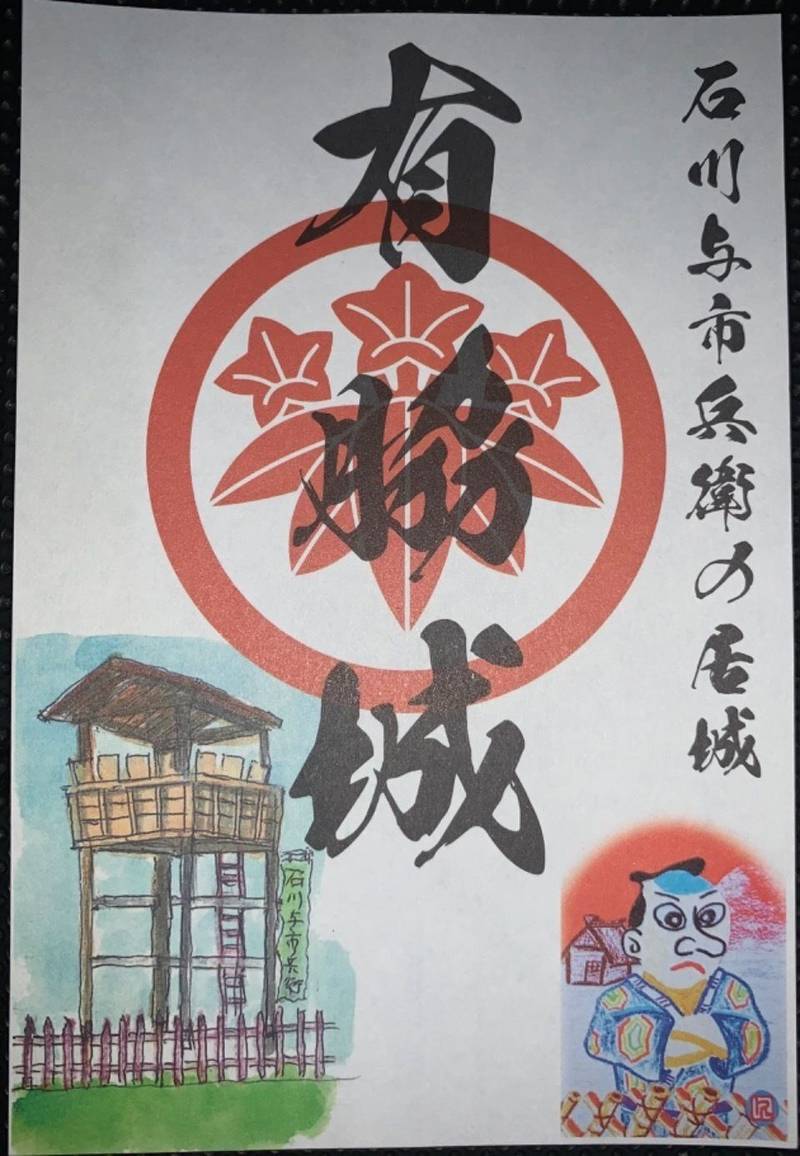 石川与市兵衛の居城
有勝城
石川与市兵衛